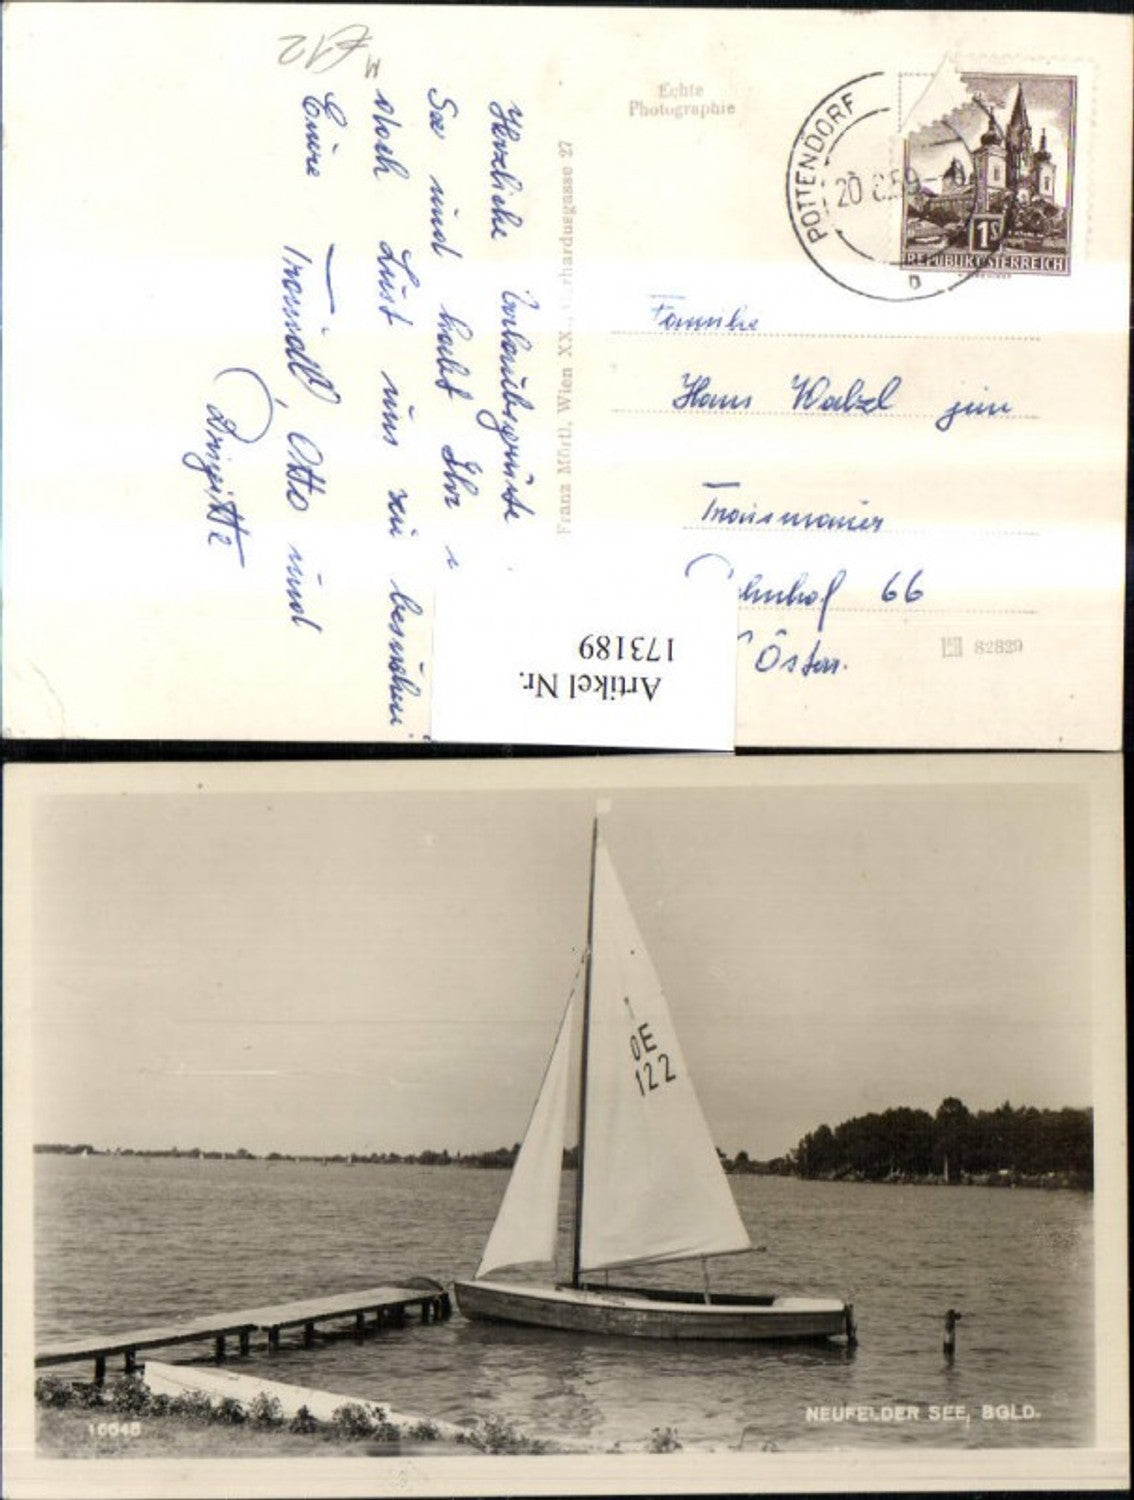 £12
M
Herzliche Urlaubsgrüße
See und habt Ihr
doch Lust uns zu besuchen
Eure Traudl, Otto und
Brigitte
Echte
Photographie
Franz Mörtl, Wien XX., Gerhardusgasse 27
POTTENDORF
20 8.59
b
1S
REPUBLIK ÖSTERREICH
Familie
Hans Walzl jun
Traismauer
Bahnhof 66
Österr.
82829
Artikel Nr.
173189
OE
122
10048
NEUFELDER SEE, BGLD.